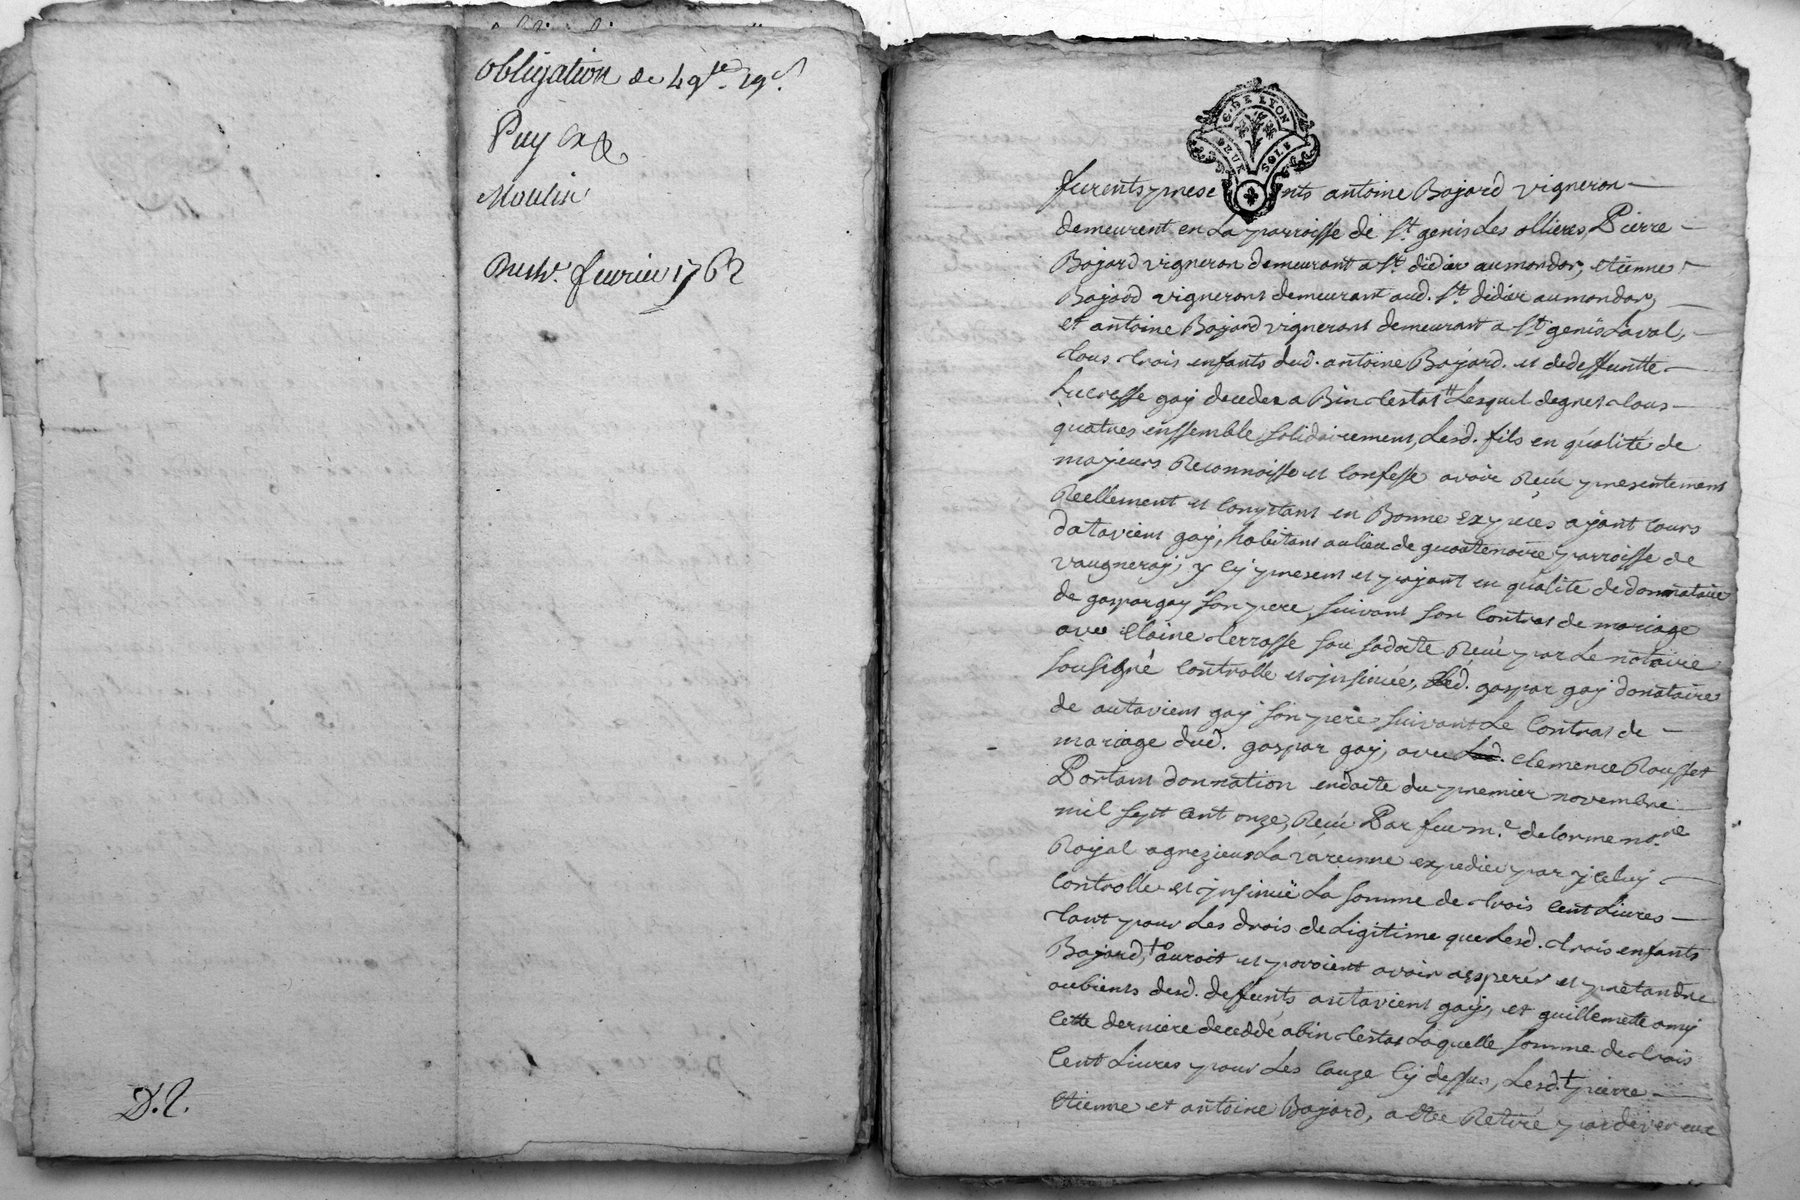 obligation de 49# 19s.
Puy
Moulin
fevrier 1762
D.2.
G. DE LYON
DEUX SOLS
furents presents antoine Bajard vigneron
demeurent en La parroisse de St. genis Les ollieres, Pierre
Bajard vigneron demeurant a St. didier aumondor, etienne
Bajard vignerons demeurant aud. St. didier aumondor,
et antoine Bajard vignerons demeurant a St genis Laval,
tous trois enfants dud. antoine Bajard. et de deffuntte
Lucresse gay decedee a Bin testat Lesquel de gres tous
quatres enssemble solidairement, Lesd. fils en qualité de
majeurs Reconnoisse et Confesse avoir Reçu presentement
Reellement et Comptant en Bonnes Expeces ayant Cours
dataviens gay, habitant au lieu de quatenoire parroisse de
vaugneray, y Cy present et payant en qualite de donnataire
de gaspar gay son pere, suivant son Contrat de mariage
avec Claine terrasse sou sadatte Reçu par Le notaire
sousigné Controlle et insinuée, Led. gaspar gay donataire
de autaviens gay son pere suivant Le Contrat de
mariage dud. gaspar gay, avec Lad. Clemence Rousset
Portant donnation en datte du premier novembre
mil sept Cent onze, Reçu Par feu m.e delorme no.re
Royal a grezieu La varenne expedié par yCeluy
Controlle et insinuë La somme de trois Cent Livres
tant pour Les drois de Ligitime que Lesd. trois enfants
Bajard, auroit et pavoient avoir assperér et pretandre
aubiens desd. defunts autaviens gay, et guillemette amy
Cette derniere deceddé abin testat Laquelle somme de trois
Cent Livres pour Les Cauze Cy dessus, Lesd. pierre
Etienne et antoine Bajard, a etée Retiré par dever eux